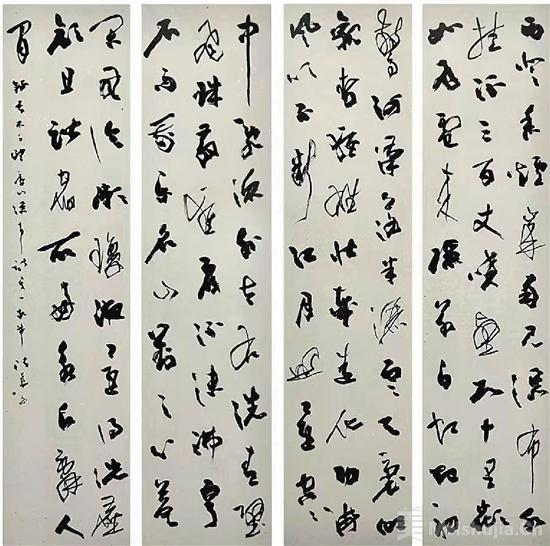 西登香爐峯南見瀑布水
挂流三百丈噴壑數十里欻
如飛電來隱若白虹起初
驚河漢落半灑雲天裏仰
觀勢轉雄壯哉造化功海
風吹不斷江月照還空空
中亂潈射左右洗青壁
飛珠散輕霞流沫沸穹
石而我樂名山對之心益
閑無論漱瓊液還得洗塵
顏且諧宿所好永願辭人
間